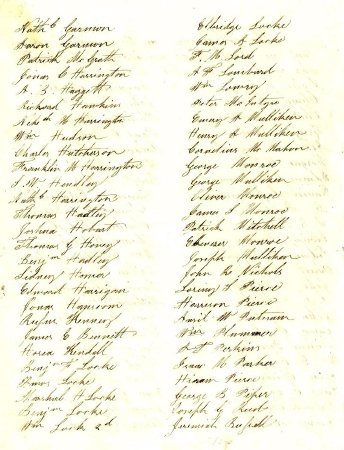 Nathl Garmon
Aaron Garmon
Patrick McGrath
Jonas C Harrington
A. S. Haggett
Richard Hawkins
W Harrington
Wm Hudson
Charles Hutchinson
Franklin W Harrington
J. W. Handley
Nathl Harrington
Thomas Hadley
Joshua Hobart
Thomas G Honey
Benjn Hadley
Sidney
Edward Harrigan
Jonas
Rufus Kenney
James C Bennett
Hosea Kendall
Benjn F Locke
Amos Locke
Marshal H Locke
Benjn Locke
Wm Lock 2d
Elbridge Locke
A Locke
F. M. Lord
A F Lombard
Wm Lowry
Peter McIntyre
Emory A Mulliken
Henry A Mulliken
Cornelius McMahon
George Monroe
George Mulliken
Oliver Monroe
James S Monroe
Patrick Mitchell
Ebenezer Monroe
Joseph Mulliken
John K Nichols
Loring S Pierce
Harrison Pierce
W Putnam
Wm Plummer
Perkins
Isaac W Parker
Hiram Pierce
George B Piper
Joseph G
Jeremiah Russell